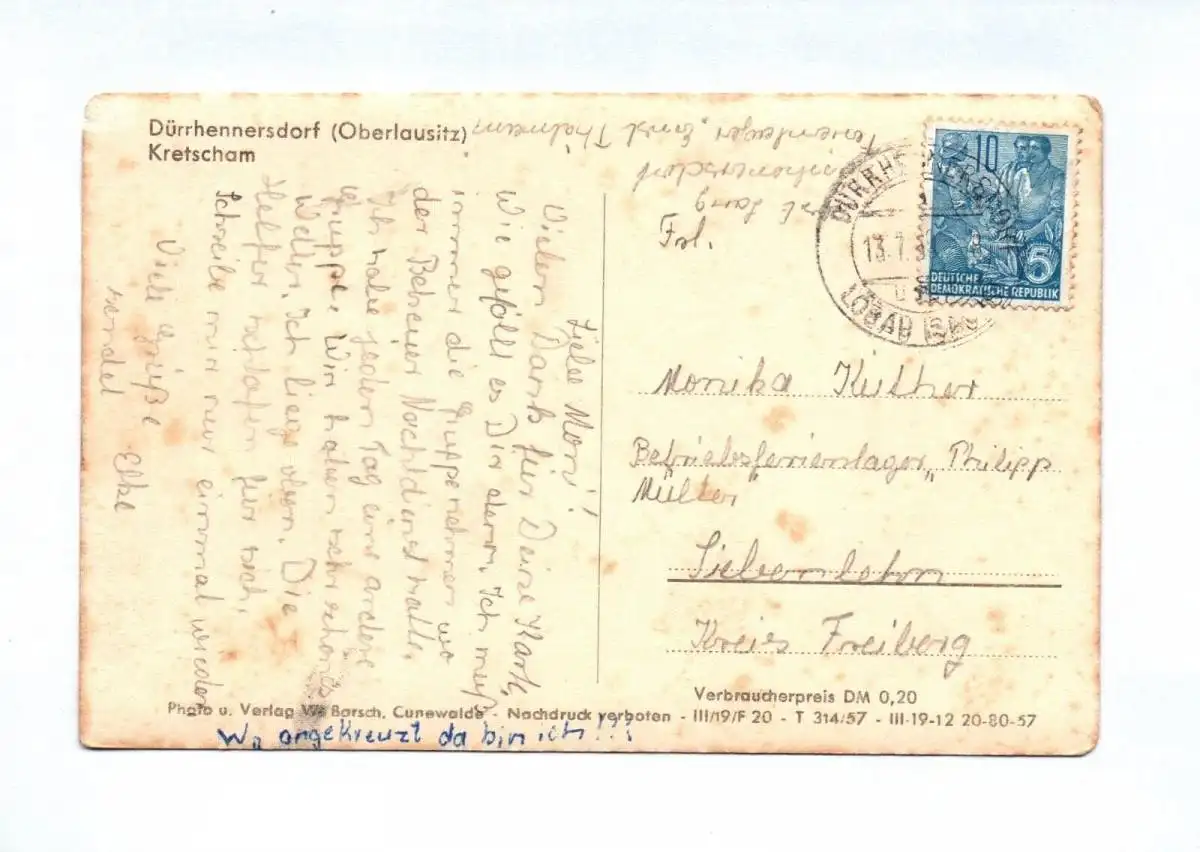 Dürrhennersdorf (Oberlausitz)
Kretscham
Ferienlager "Ernst Thälmann
Liebe Moni!
Vielen Dank für Deine Karte,
Wie gefällt es Dir denn. Ich muß
immer die Gruppe nehmen wo
der Betreuer Nachtdienst hatte.
Ich habe jeden Tag eine andere
Gruppe. Wir haben sehr schönes
Wetter. Ich liege oben. Die
Helfer schlafen für sich.
Schreibe mir nur einmal wieder
Viele Grüße
sendet Elke
Frl.
Monika Küther
Betriebsferienlager "Philipp
Müller"
Siebenlehn
Kreis Freiberg
DÜRRHENNERSDORF
13.7.5
LÖBAU (SACHS)
10
5
DEUTSCHE
DEMOKRATISCHE REPUBLIK
Verbraucherpreis DM 0,20
Photo u. Verlag W. Barsch, Cunewalde - Nachdruck verboten - III/19/F 20 - T 314/57 - III-19-12 20-80-57
Wo angekreuzt da bin ich!!!